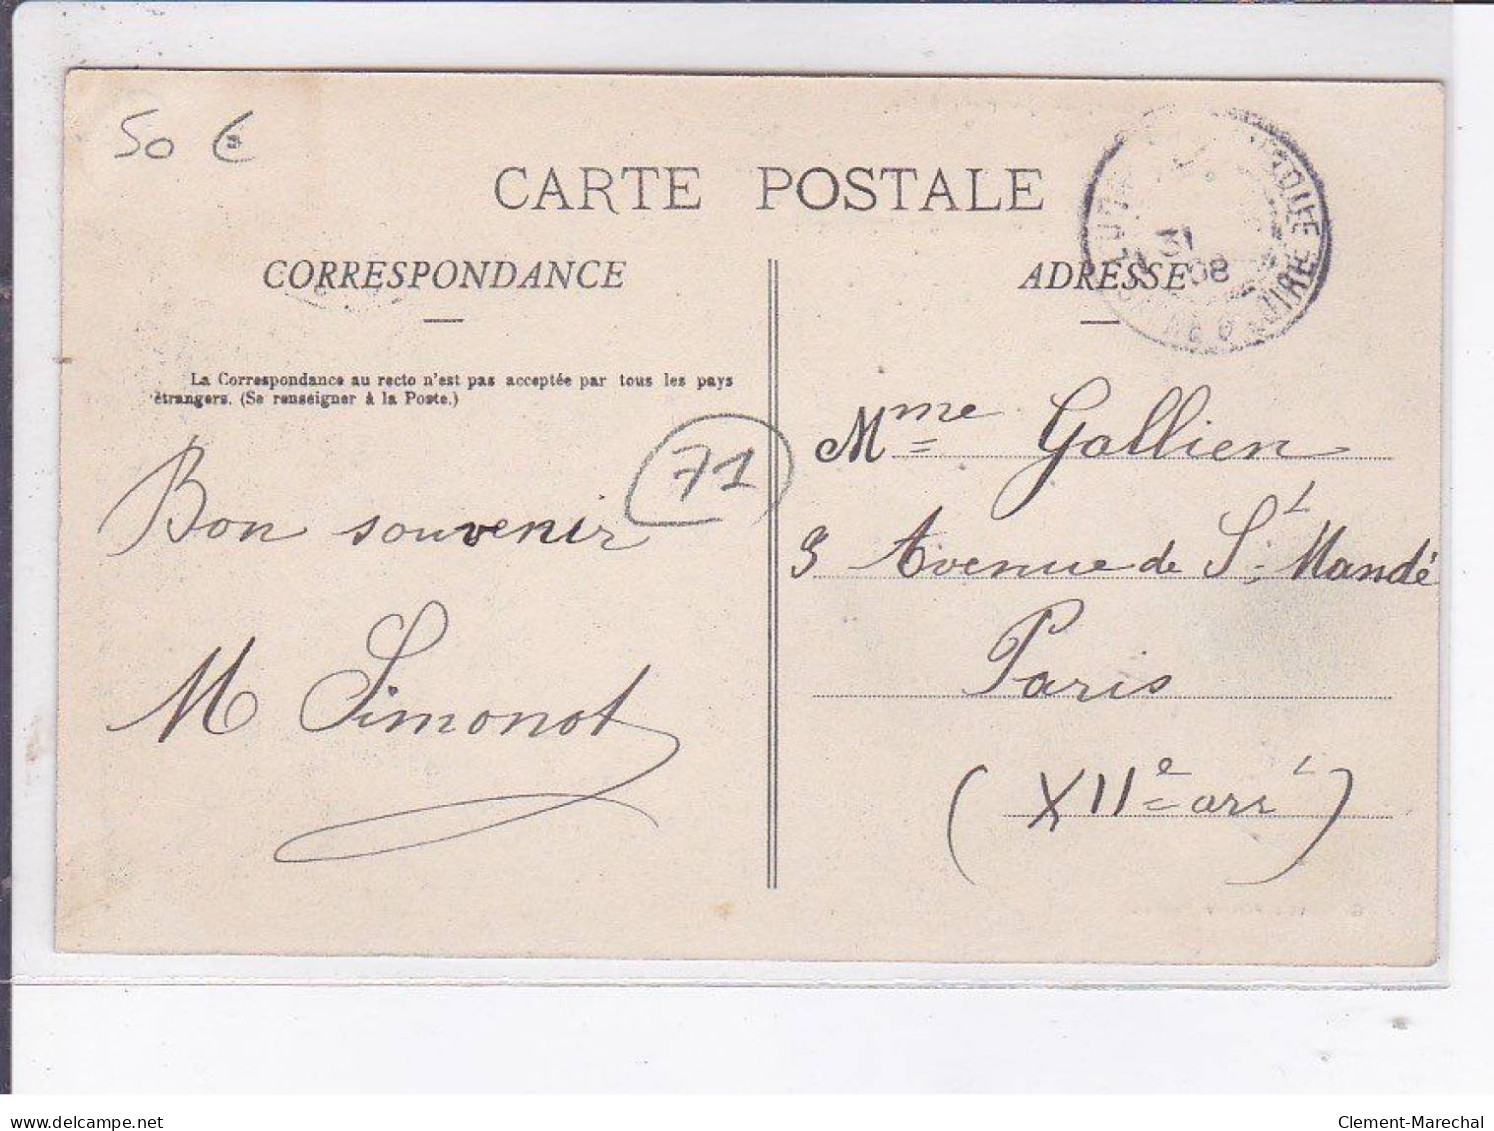 50 €
CARTE POSTALE
CORRESPONDANCE
ADRESSE
La Correspondance au recto n'est pas acceptée par tous les pays
étrangers. (Se renseigner à la Poste.)
71
Bon souvenir
M Simonot
Mme Gallien
3 Avenue de St Mandé
Paris
(XIIe arrt)
31
08
LOIRE
delcampe.net
Clement-Marechal